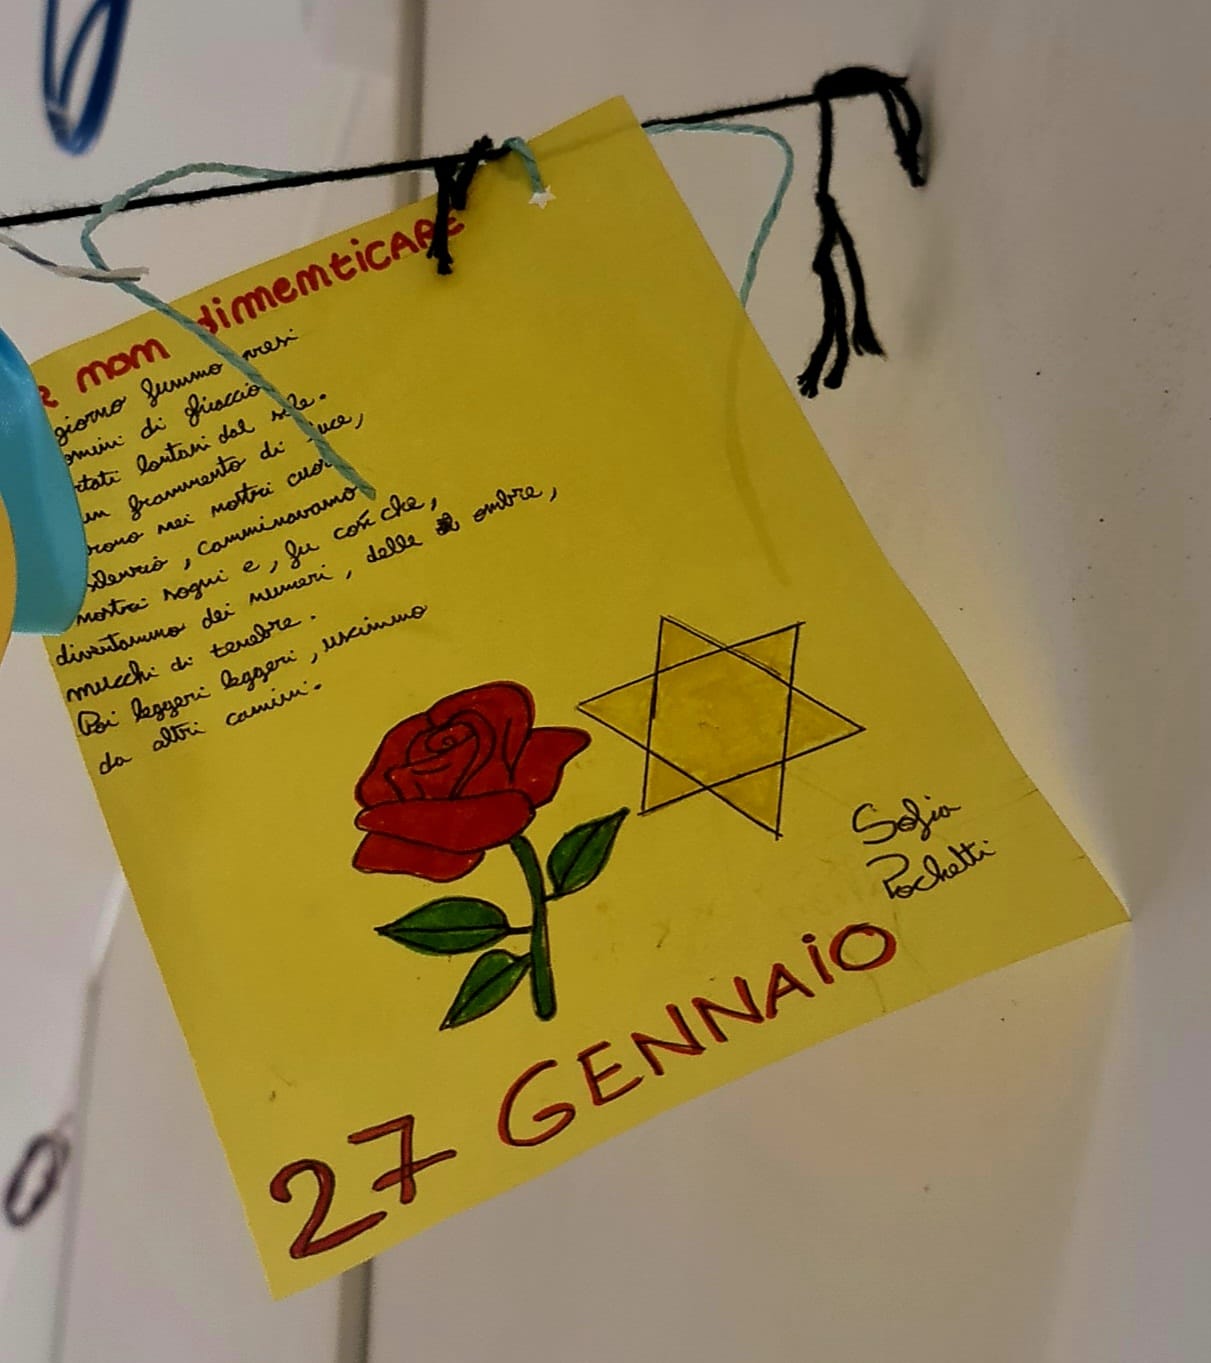 R nom dimenticare
giorno fummo presi
omini di ghiaccio
tati lontani dal sole.
un frammento di luce,
rono nei nostri cuori
silenzio, camminavamo
nostri sogni e, fu così che,
diventammo dei numeri, delle ombre,
mucchi di tenebre.
Poi leggeri leggeri, uscimmo
da altri camini.
Sofia
Pochetti
27 GENNAIO